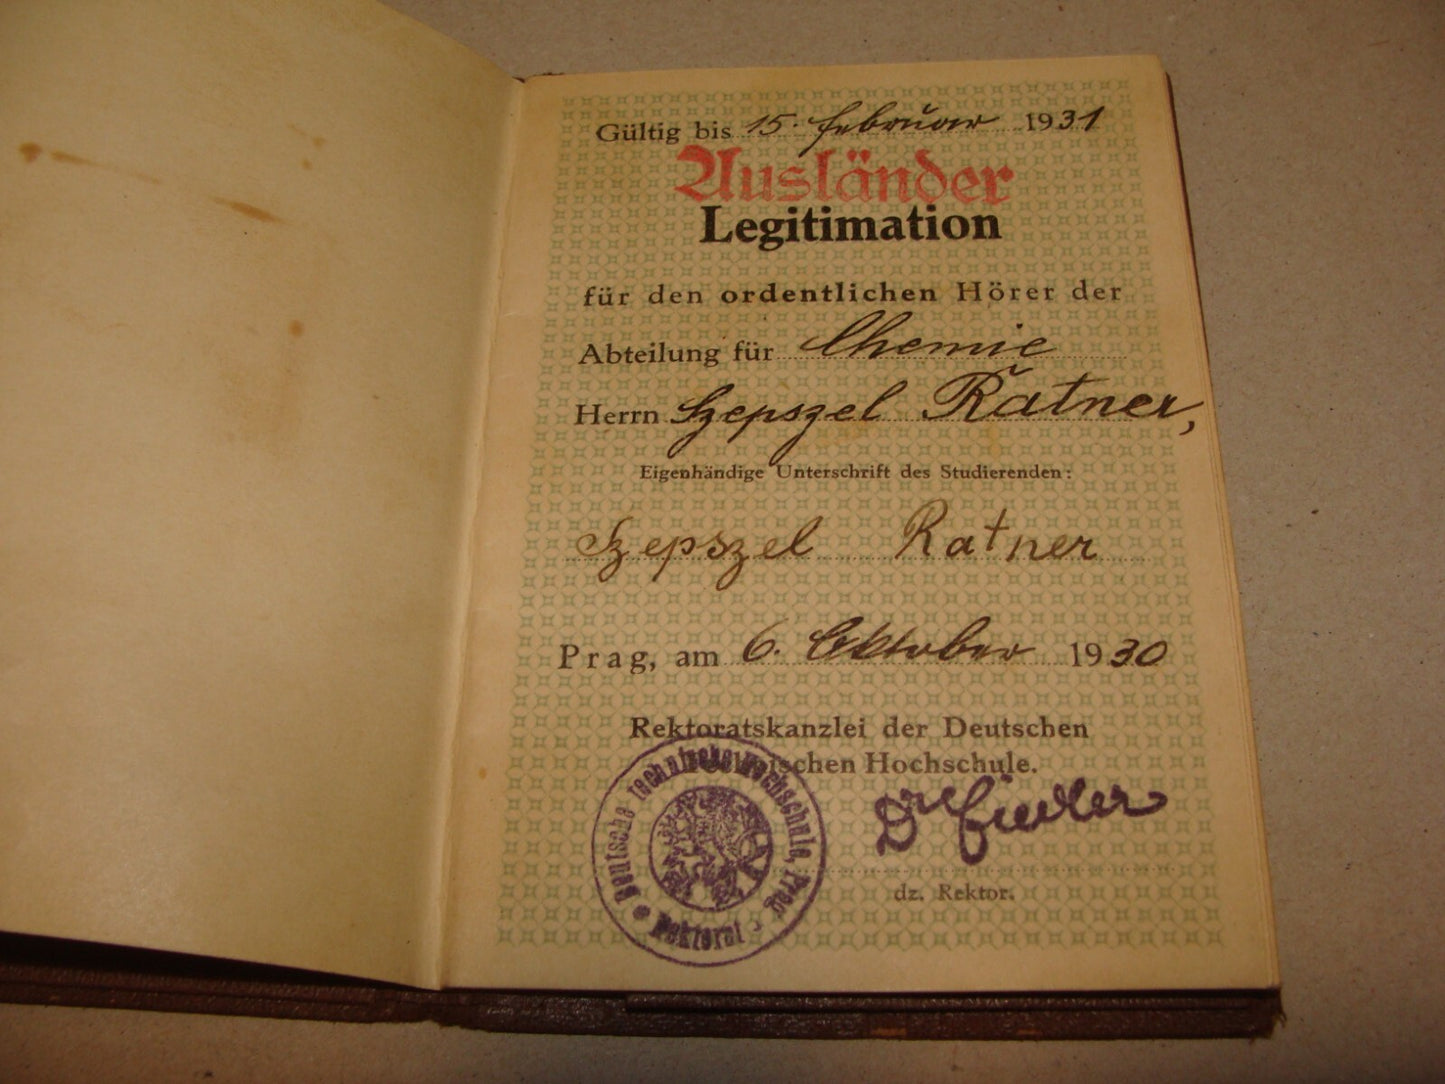 Gültig bis 15. Februar 1931
Ausländer
Legitimation
für den ordentlichen Hörer der
Abteilung für Chemie
Herrn Szepszel Ratner,
Eigenhändige Unterschrift des Studierenden:
Szepszel Ratner
Prag, am 6. Oktober 1930
Rektoratskanzlei der Deutschen
Technischen Hochschule.
Dr Fiedler
dz. Rektor.
Deutsche technische Hochschule, Prag
Rektorat